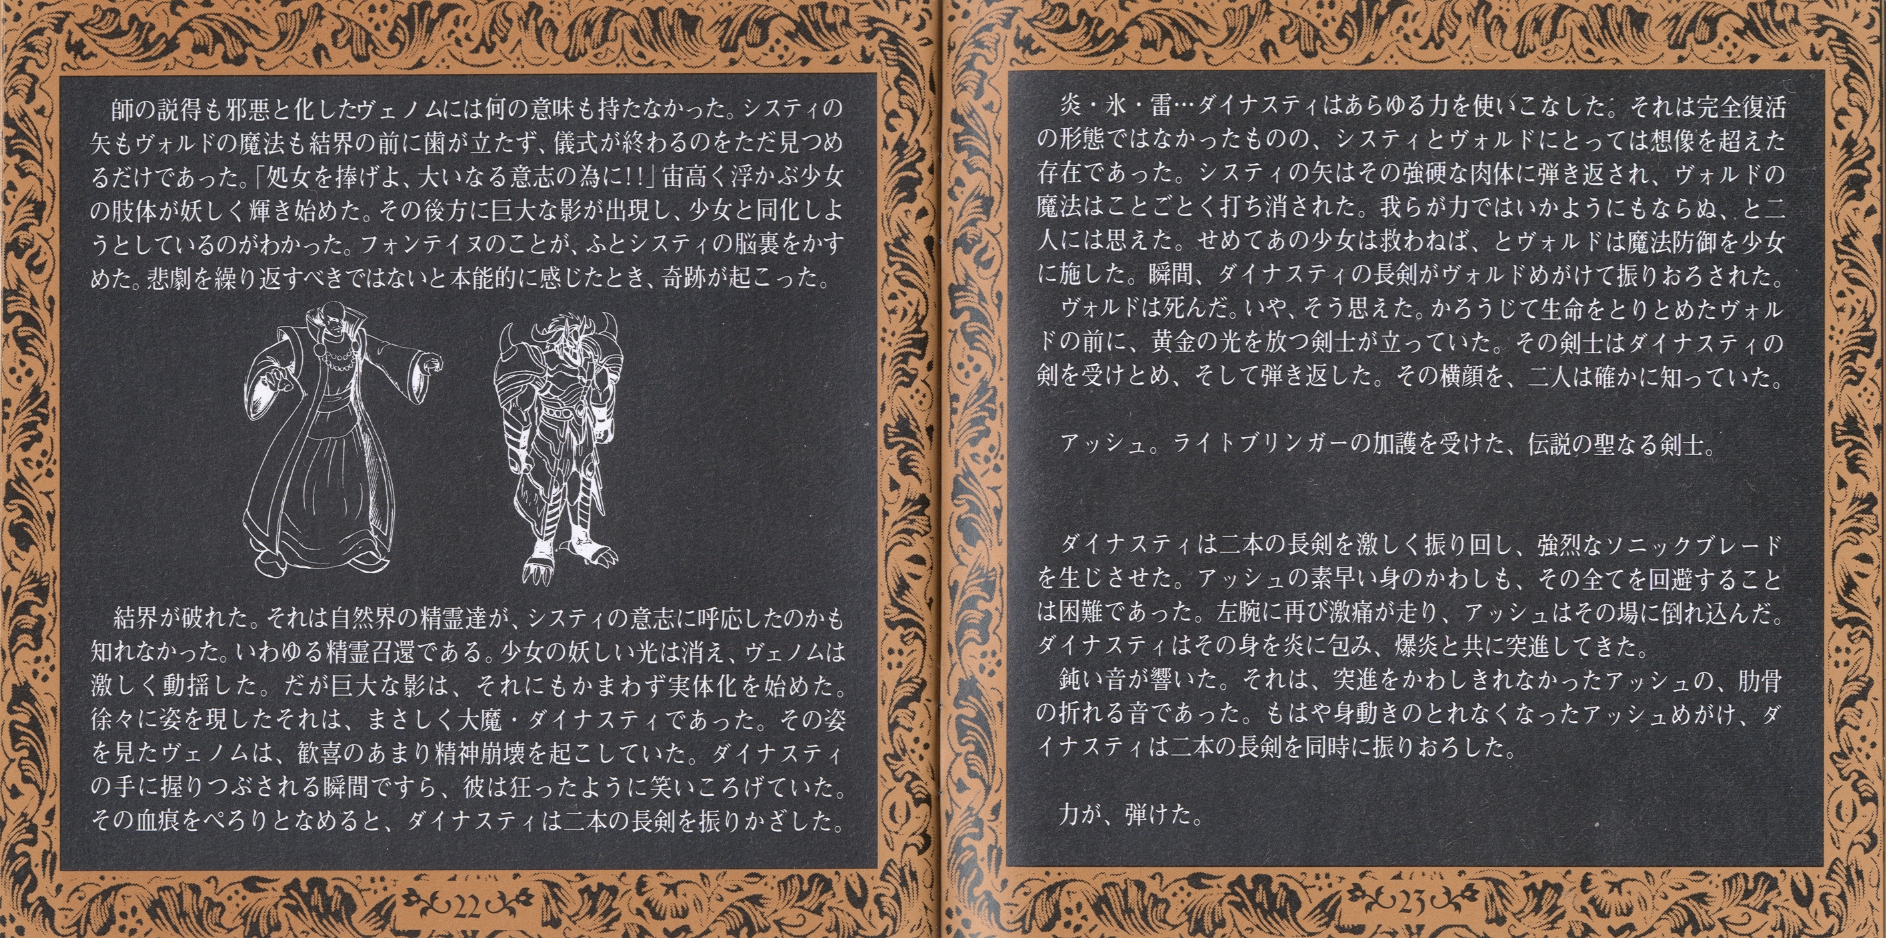 師の説得も邪悪と化したヴェノムには何の意味も持たなかった。システィの
矢もヴォルドの魔法も結界の前に歯が立たず、儀式が終わるのをただ見つめ
るだけであった。「処女を捧げよ、大いなる意志の為に!!」宙高く浮かぶ少女
の肢体が妖しく輝き始めた。その後方に巨大な影が出現し、少女と同化しよ
うとしているのがわかった。フォンテイヌのことが、ふとシスティの脳裏をかす
めた。悲劇を繰り返すべきではないと本能的に感じたとき、奇跡が起こった。
結界が破れた。それは自然界の精霊達が、システィの意志に呼応したのかも
知れなかった。いわゆる精霊召還である。少女の妖しい光は消え、ヴェノムは
激しく動揺した。だが巨大な影は、それにもかまわず実体化を始めた。
徐々に姿を現したそれは、まさしく大魔・ダイナスティであった。その姿
を見たヴェノムは、歓喜のあまり精神崩壊を起こしていた。ダイナスティ
の手に握りつぶされる瞬間ですら、彼は狂ったように笑いころげていた。
その血痕をぺろりとなめると、ダイナスティは二本の長剣を振りかざした。
22
炎・氷・雷…ダイナスティはあらゆる力を使いこなした。それは完全復活
の形態ではなかったものの、システィとヴォルドにとっては想像を超えた
存在であった。システィの矢はその強硬な肉体に弾き返され、ヴォルドの
魔法はことごとく打ち消された。我らが力ではいかようにもならぬ、と二
人には思えた。せめてあの少女は救わねば、とヴォルドは魔法防御を少女
に施した。瞬間、ダイナスティの長剣がヴォルドめがけて振りおろされた。
ヴォルドは死んだ。いや、そう思えた。かろうじて生命をとりとめたヴォル
ドの前に、黄金の光を放つ剣士が立っていた。その剣士はダイナスティの
剣を受けとめ、そして弾き返した。その横顔を、二人は確かに知っていた。
アッシュ。ライトブリンガーの加護を受けた、伝説の聖なる剣士。
ダイナスティは二本の長剣を激しく振り回し、強烈なソニックブレード
を生じさせた。アッシュの素早い身のかわしも、その全てを回避すること
は困難であった。左腕に再び激痛が走り、アッシュはその場に倒れ込んだ。
ダイナスティはその身を炎に包み、爆炎と共に突進してきた。
鈍い音が響いた。それは、突進をかわしきれなかったアッシュの、肋骨
の折れる音であった。もはや身動きのとれなくなったアッシュめがけ、ダ
イナスティは二本の長剣を同時に振りおろした。
力が、弾けた。
23